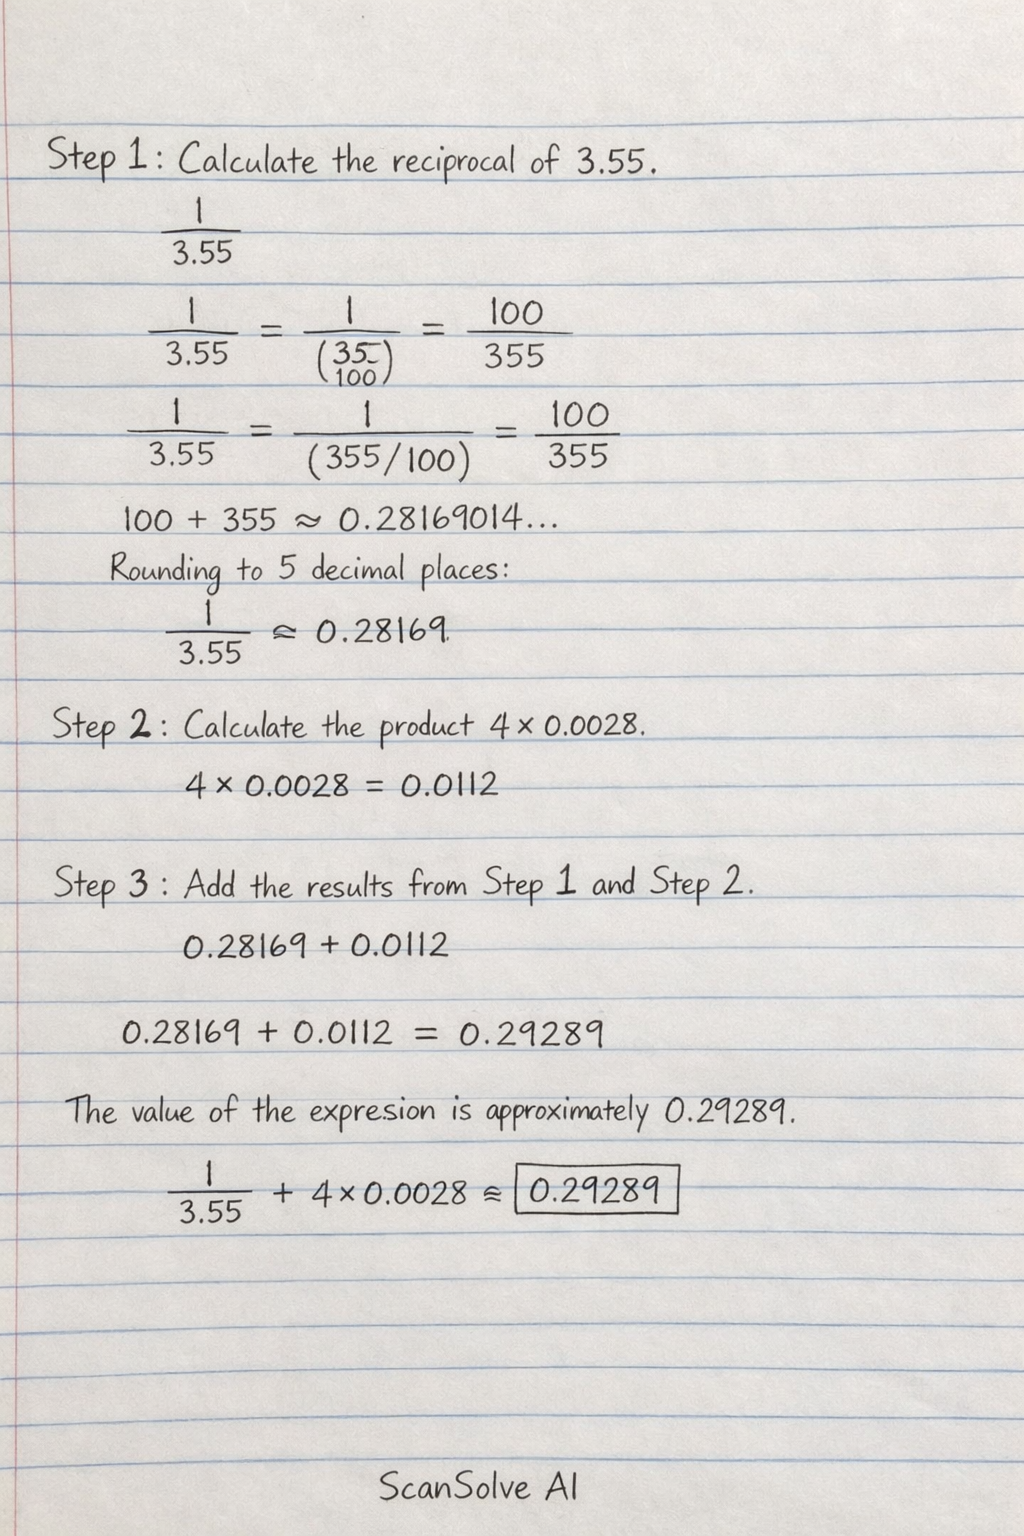 Step 1: Calculate the reciprocal of 3.55.
1
3.55
1/3.55 = 1/(35/100) = 100/355
1/3.55 = 1/(355/100) = 100/355
100 + 355 ≈ 0.28169014...
Rounding to 5 decimal places:
1/3.55 ≈ 0.28169.
Step 2: Calculate the product 4 × 0.0028.
4 × 0.0028 = 0.0112
Step 3: Add the results from Step 1 and Step 2.
0.28169 + 0.0112
0.28169 + 0.0112 = 0.29289
The value of the expresion is approximately 0.29289.
1/3.55 + 4 × 0.0028 ≊ 0.29289
ScanSolve AI